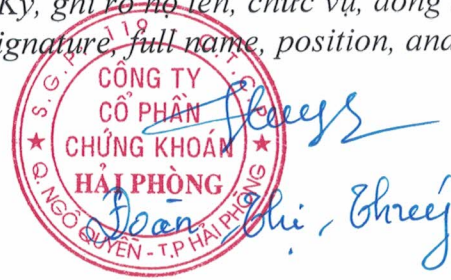 Ký, ghi rõ họ tên, chức vụ, đóng
signature, full name, position, and
CÔNG TY
CỔ PHẦN
CHỨNG KHOÁN
HẢI PHÒNG
Q. NGÔ QUYỀN - T.P HẢI PHÒNG
Đoàn Thị